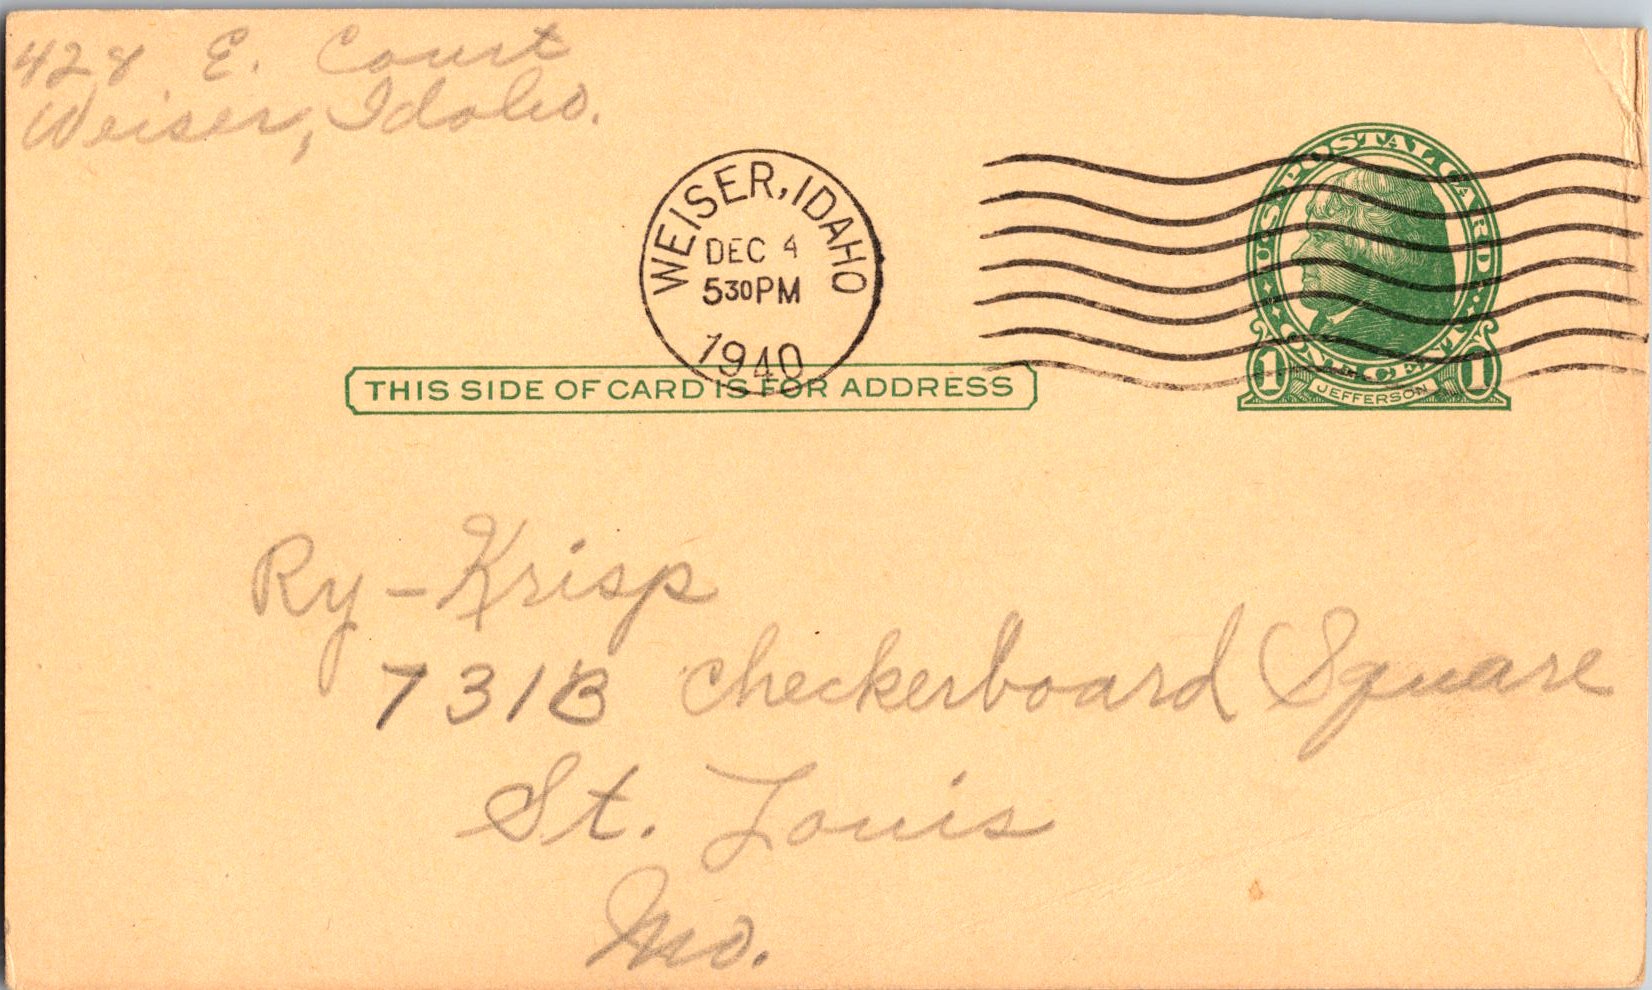 428 E. Court
Weiser, Idaho.
WEISER, IDAHO
DEC 4
530PM
1940
U.S. POSTAL CARD
ONE CENT
1 JEFFERSON 1
THIS SIDE OF CARD IS FOR ADDRESS
Ry-Krisp
731B Checkerboard Square
St. Louis
Mo.